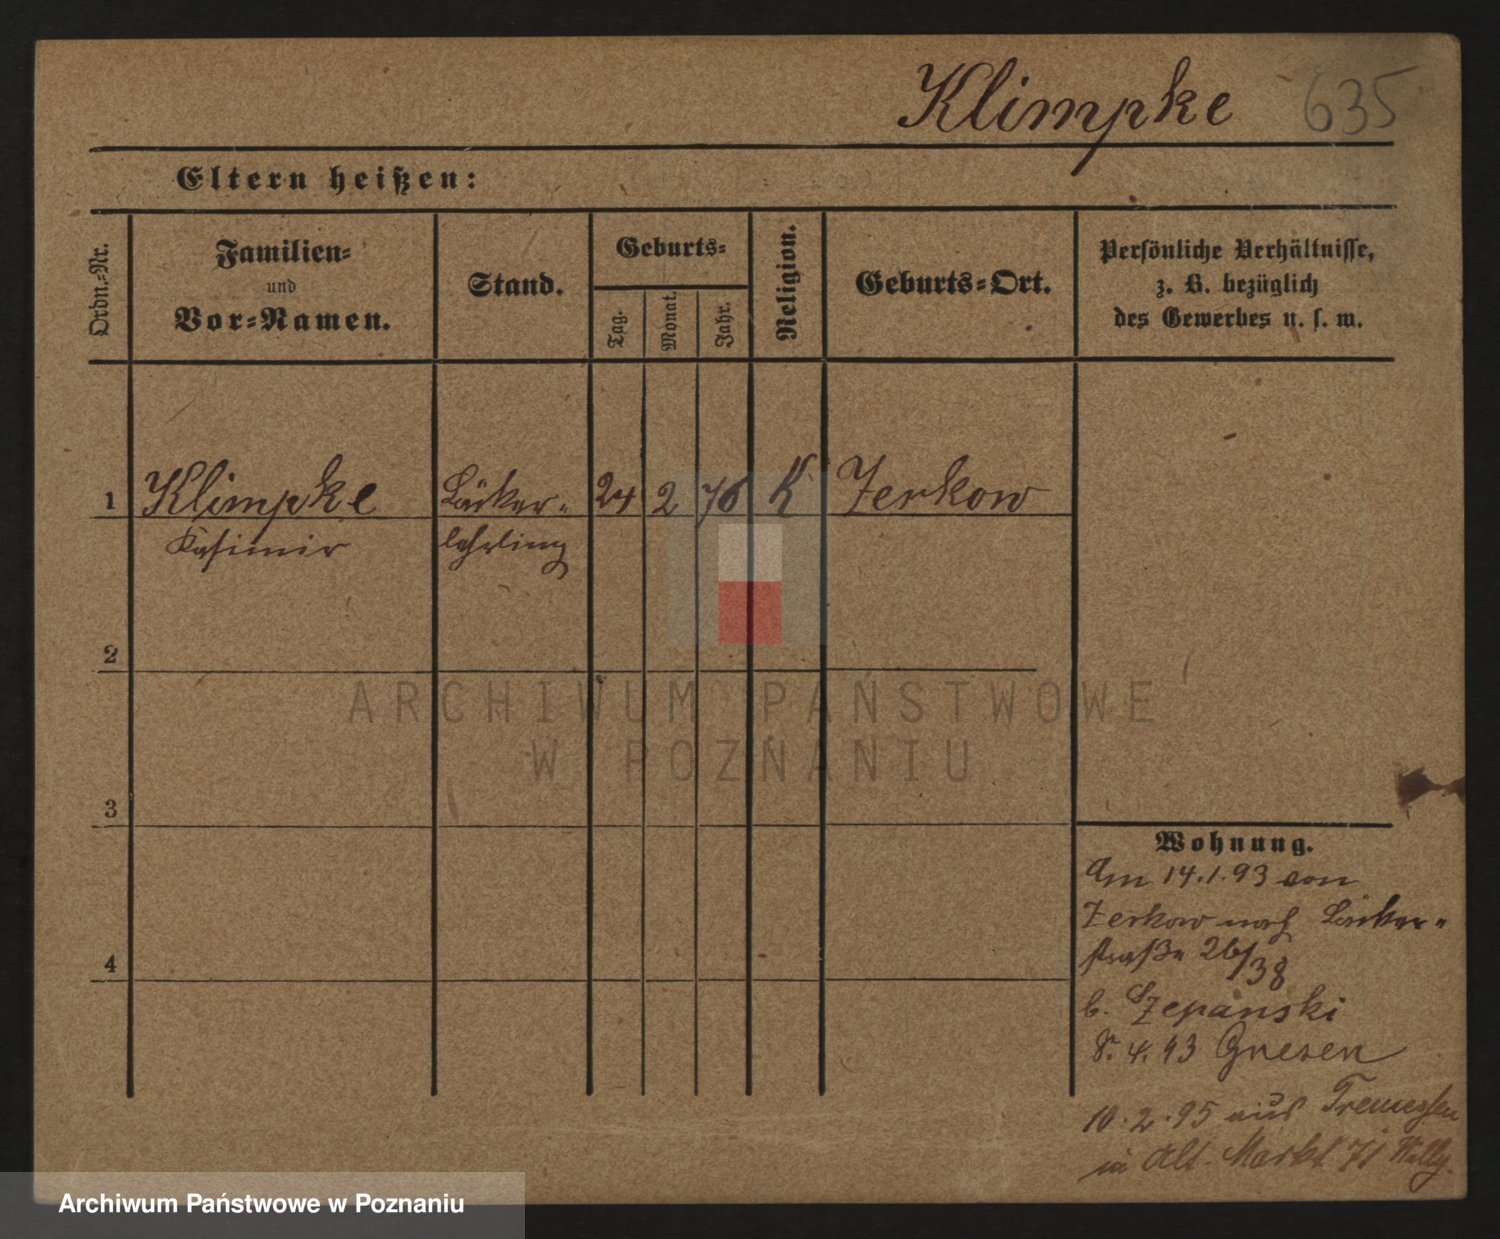 Klimpke 635
Eltern heißen:
Ordn.-Nr.
Familien-
und
Vor-Namen.
Stand.
Geburts-
Tag.
Monat.
Jahr.
Religion.
Geburts-Ort.
Persönliche Verhältnisse,
z. B. bezüglich
des Gewerbes u. s. w.
1 Klimpke Bäcker- 24 2 76 K Zerkow
Kasimir lehrling
2
3
4
ARCHIWUM PAŃSTWOWE
W POZNANIU
Wohnung.
Am 14.1.93 von
Zerkow nach Bäcker-
straße 26/38
b. Szepanski
8. 4. 93 Gnesen
10.2.95 aus Tremessen
in Alt. Markt 71
Archiwum Państwowe w Poznaniu